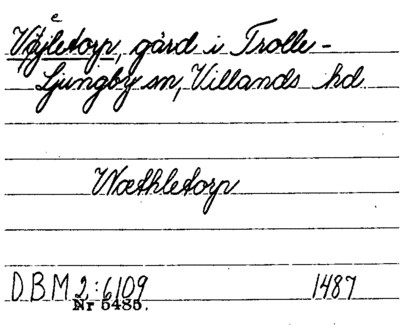 Väjletorp, gård i Trolle-
Ljungby sn, Villands hd
Wæthletorp
DBM 2:6109 1487
Nr 5485.